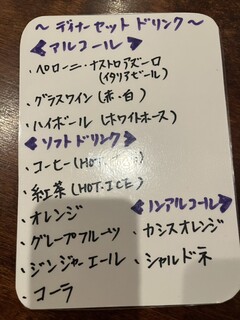 ～ディナーセットドリンク～
≪アルコール≫
・ペローニ・ナストロアズーロ
(イタリアビール)
・グラスワイン(赤・白)
・ハイボール(ホワイトホース)
≪ソフトドリンク≫
・コーヒー(HOT・
・紅茶(HOT・ICE)
・オレンジ
・グレープフルーツ
・ジンジャーエール
・コーラ
≪ノンアルコール≫
・カシスオレンジ
・シャルドネ